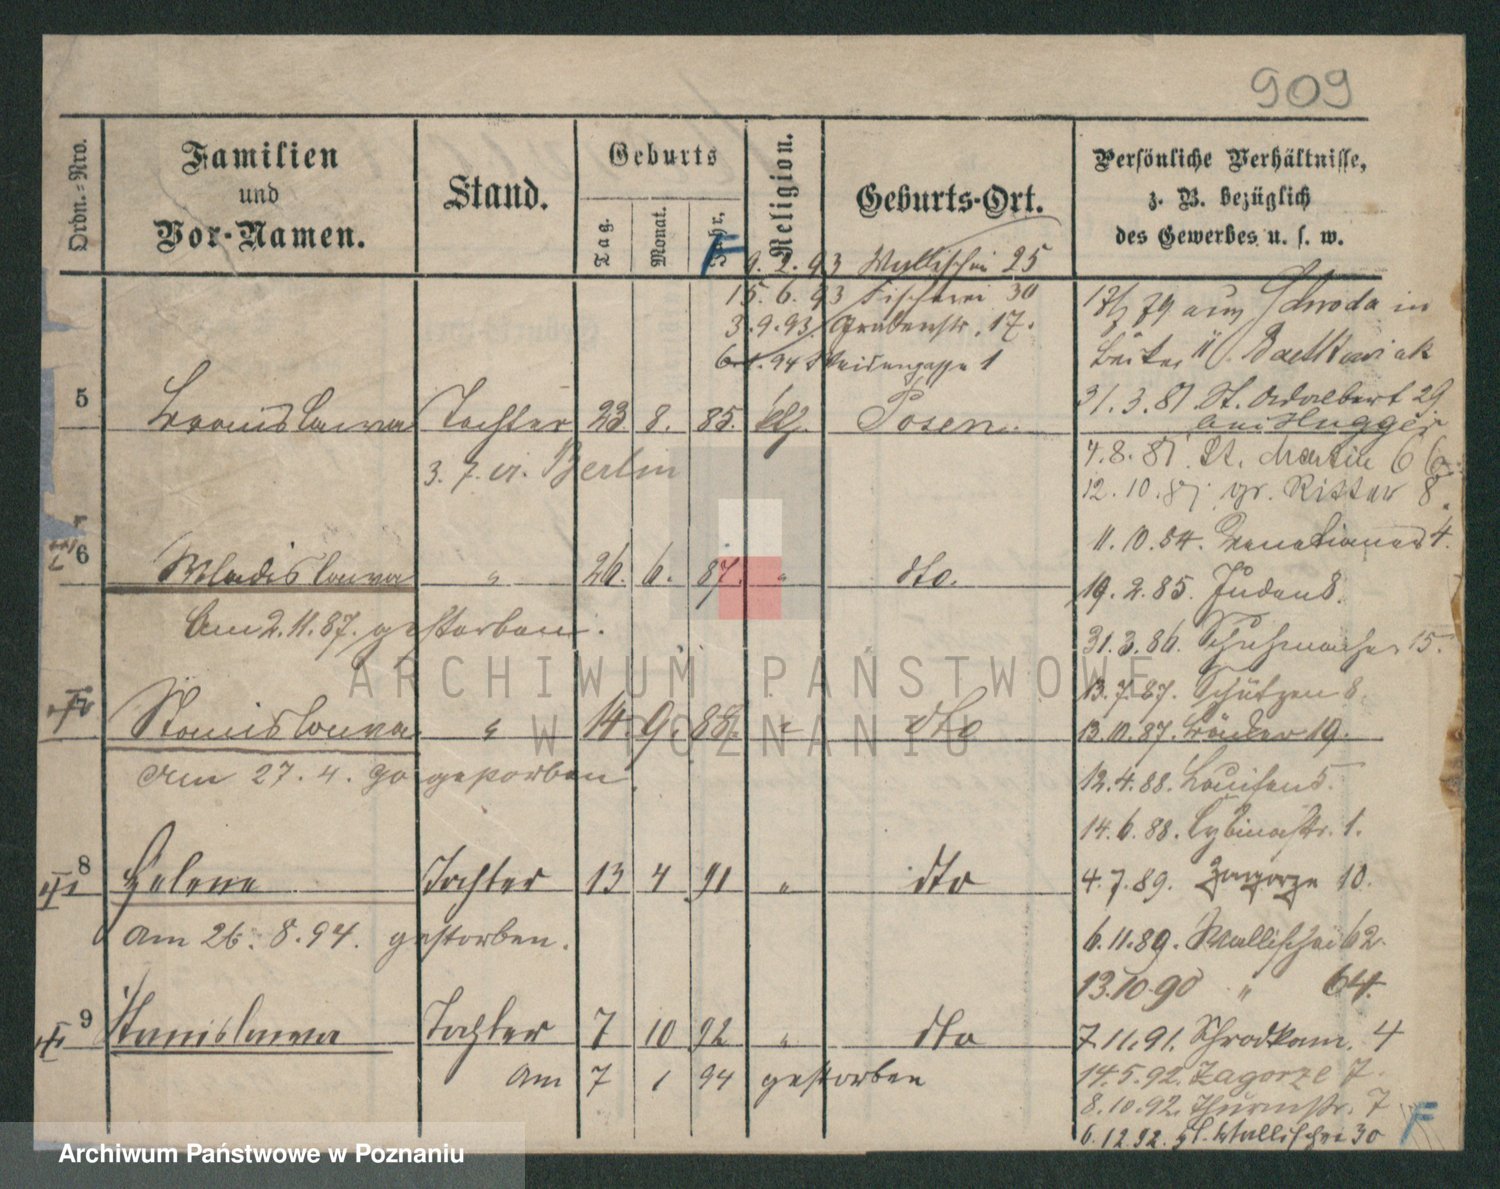 909
Ordn.=Nro.
Familien
und
Vor-Namen.
Stand.
Geburts
Tag.
Monat.
Jahr.
Religion.
Geburts-Ort.
Persönliche Verhältnisse,
z. B. bezüglich
des Gewerbes u. s. w.
F
9. 2. 93 Wallischei 25
15. 6. 93 Fischerei 30
3. 9. 93. Grabenstr. 17.
94 Weidengasse 1
79 aus Schroda in
5 Bronislawa Tochter 23 8. 85. kth. Posen.
3. 7. Berlin
31. 3. 81 St. Adalbert 29
4. 8. 81. St. Martin 66.
12. 10. 81 gr. Ritter 8.
11. 10. 84. 4.
6 Wladislawa " 26. 6. 87. " dto.
Am 2. 11. 87. gestorben.
19. 2. 85. Juden 8.
31. 3. 86. Schuhmacher 15.
13. 7. 87. Schützen 8.
7 Stanislawa " 14. 9. 88. " dto
Am 27. 4. 90 gestorben
13. 10. 87. 19.
12. 4. 88. Louisen 5.
14. 6. 88. Cybinastr. 1.
8 Helene Tochter 13 4 91 " dto
am 26. 8. 94. gestorben.
4. 7. 89. Zagorze 10.
6. 11. 89. Wallischei 62.
13. 10. 90 " 64.
9 Stanislawa Tochter 7 10 92 " dto
am 7 1 94 gestorben
7. 11. 91. Schrodkam. 4
14. 5. 92. Zagorze 7.
8. 10. 92. Thurmstr. 7
6. 12. 92. Wallischei 30
F
ARCHIWUM PAŃSTWOWE
W POZNANIU
Archiwum Państwowe w Poznaniu